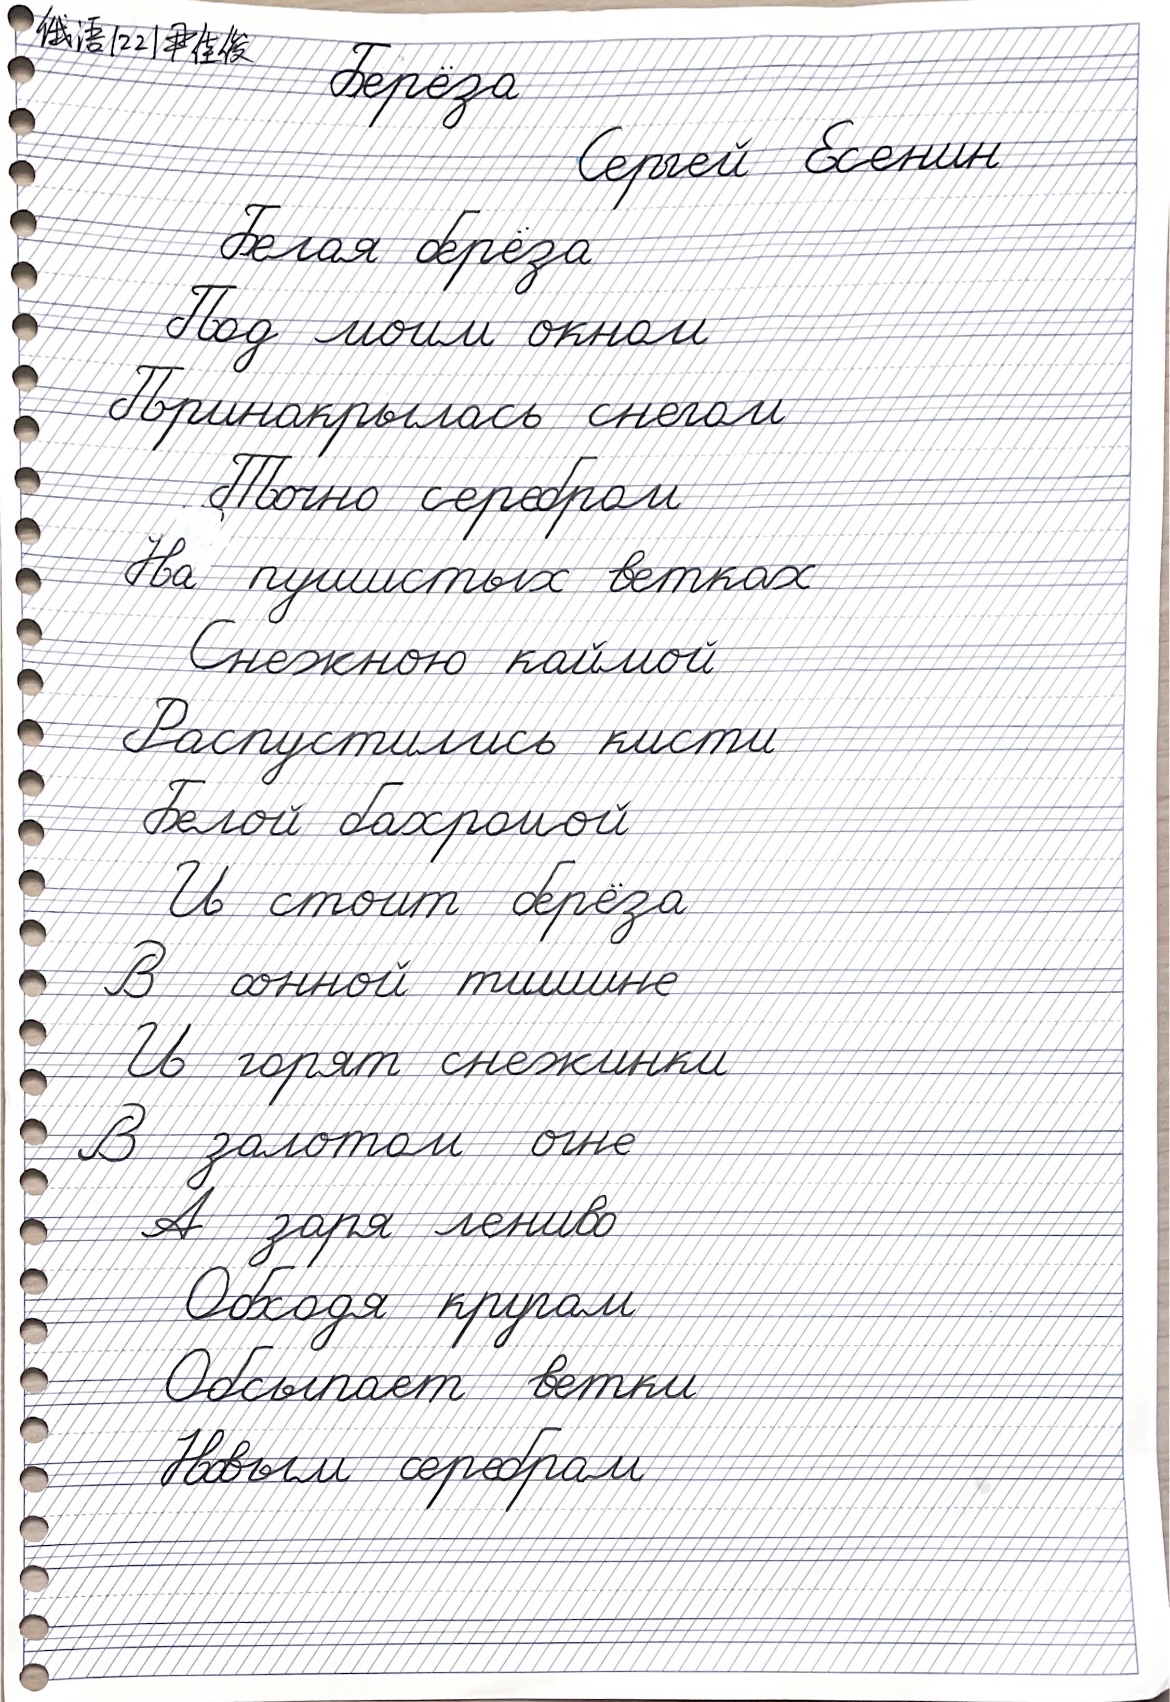 俄语1221尹佳俊
Берёза
Сергей Есенин
Белая берёза
Под моим окном
Принакрылась снегом
Точно серебром
На пушистых ветках
Снежною каймой
Распустились кисти
Белой бахромой
И стоит берёза
В сонной тишине
И горят снежинки
В золотом огне
А заря лениво
Обходя кругом
Обсыпает ветки
Новым серебром